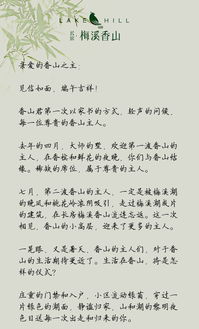 LAKE HILL
梅溪香山
亲爱的香山之主：
见信如面，端午吉祥！
香山君第一次以家书的方式，轻声的问候，
每一位尊贵的香山主人。
去年的四月，大师的墅，欢迎第一波香山的
主人，在香槟和鲜花的夜晚，你们与香山结
缘。稀缺的席位，属于尊贵的主人。
七月，第一波香山的主人，一定是被梅溪湖
的晚风和桃花岭凉阴吸引，走过梅溪湖夜片
的建筑，在长岛梅溪香山流连忘返。这一次
相见，香山的小高层，迎来了更多的主人。
一见暖，又是春天，香山的主人们，对于香
山的生活期待更近了。生活在香山，将是怎
样的仪式？
庄重的门禁和入户，小区流动绿茵，穿过一
片绿色的湖面，静谧归家，山和湖的悠明夜
色目送每一次出走和归来的你。